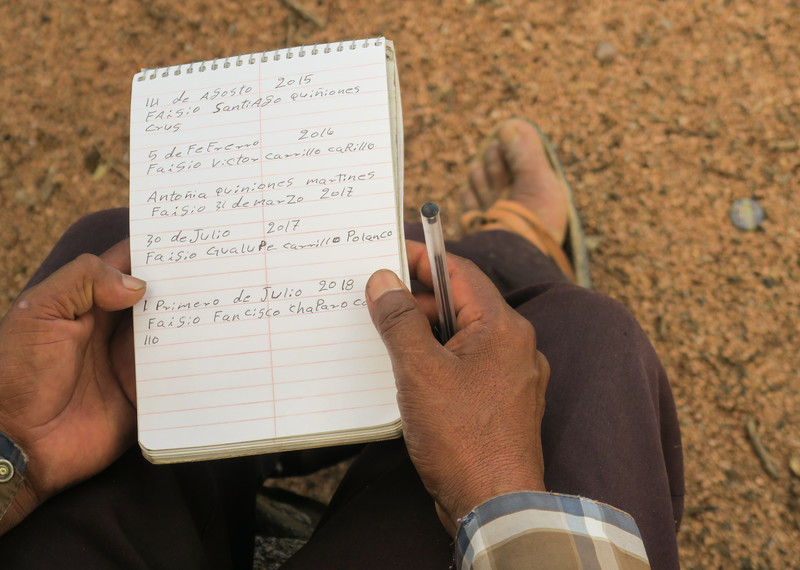 14 de Agosto 2015
FAisio SantiAgo quiñiones
Crus
5 de FeFrerro 2016
Faisio Victor carrillo caRillo
Antoñia quiniones martines
Faisio 31 de marzo 2017
30 de Julio 2017
Faisio Gualupe carrillo Polanco
1 Primero de Julio 2018
Faisio Fancisco chaparo
llo